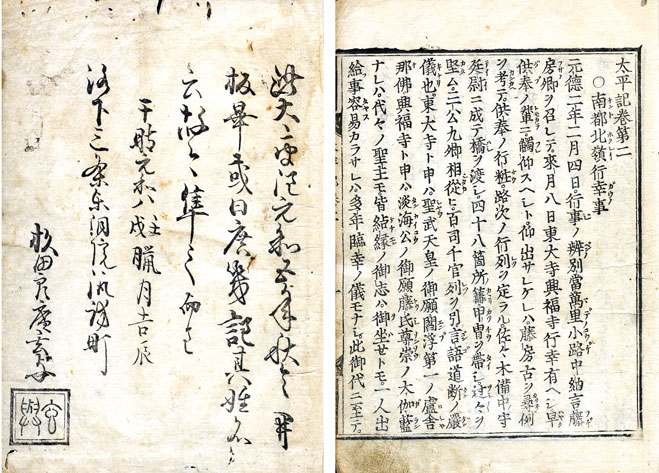 太平記巻第二
○南都北嶺行幸事
元德二年二月四日行事ノ辨別當萬里小路中納言藤
房卿ヲ召レテ來月八日東大寺興福寺行幸有ヘシ早
供奉ノ輩ニ觸仰スヘシト仰出サレケレハ藤房古ヲ尋例
ヲ考テ供奉ノ行粧路次ノ行列ヲ定ラル佐々木備中守
廷尉ニ成テ橋ヲ渡シ四十八箇所篝甲冑ヲ帶シ辻々ヲ
堅ム三公九卿相從ヒ百司千官列ヲ引言語道断ノ嚴
儀也東大寺ト申ハ聖武天皇ノ御願閻浮第一ノ盧舎
那佛興福寺ト申ハ淡海公ノ御願藤氏尊崇ノ大伽藍
ナレハ代々ノ聖主モ皆結縁ノ御志ハ御坐セトモ一人出
給事容易カラサレハ多年臨幸ノ儀モナシ此御代ニ至テ
開
板畢或曰廣幾記其姓名
云故今準之而已
于時元和八壬戌臘月吉辰
洛下三条東洞院町
杉田良庵玄与
玄與